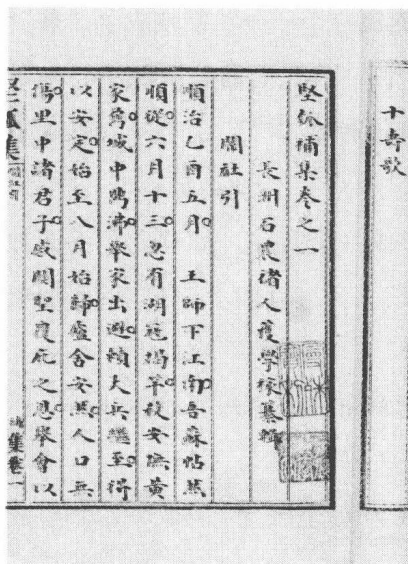 十壽歌
堅瓠補集卷之一
長洲石農褚人穫學稼纂輯
關社引
順治乙酉五月　王師下江南吾蘇帖然
順從六月十三忽有湖寇揭竿殺安撫黃
家鼐城中鼎沸舉家出避賴大兵繼至得
以安定始至八月始歸廬舍安然人口無
傷里中諸君子感關聖覆庇之恩舉會以
堅瓠集
補集卷一